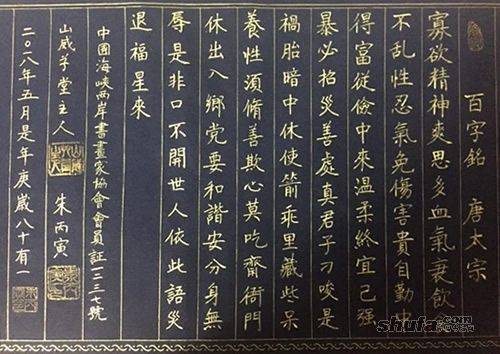 百字銘 唐太宗
寡欲精神爽思多血氣衰飲
不乱性忍氣免傷害貴自勤中
得富從儉中來温柔終宜己强
暴必招災善處真君子刁唆是
禍胎暗中休使箭乖里藏些呆
養性須脩善欺心莫吃齋衙門
休出入鄉党要和諧安分身無
辱是非口不開世人依此語災
退福星來
中國海峽两岸書畫家協會會員証一三三七號
山威草堂主人 朱丙寅
二〇一八年五月是年庚歲八十有一
shufa.com